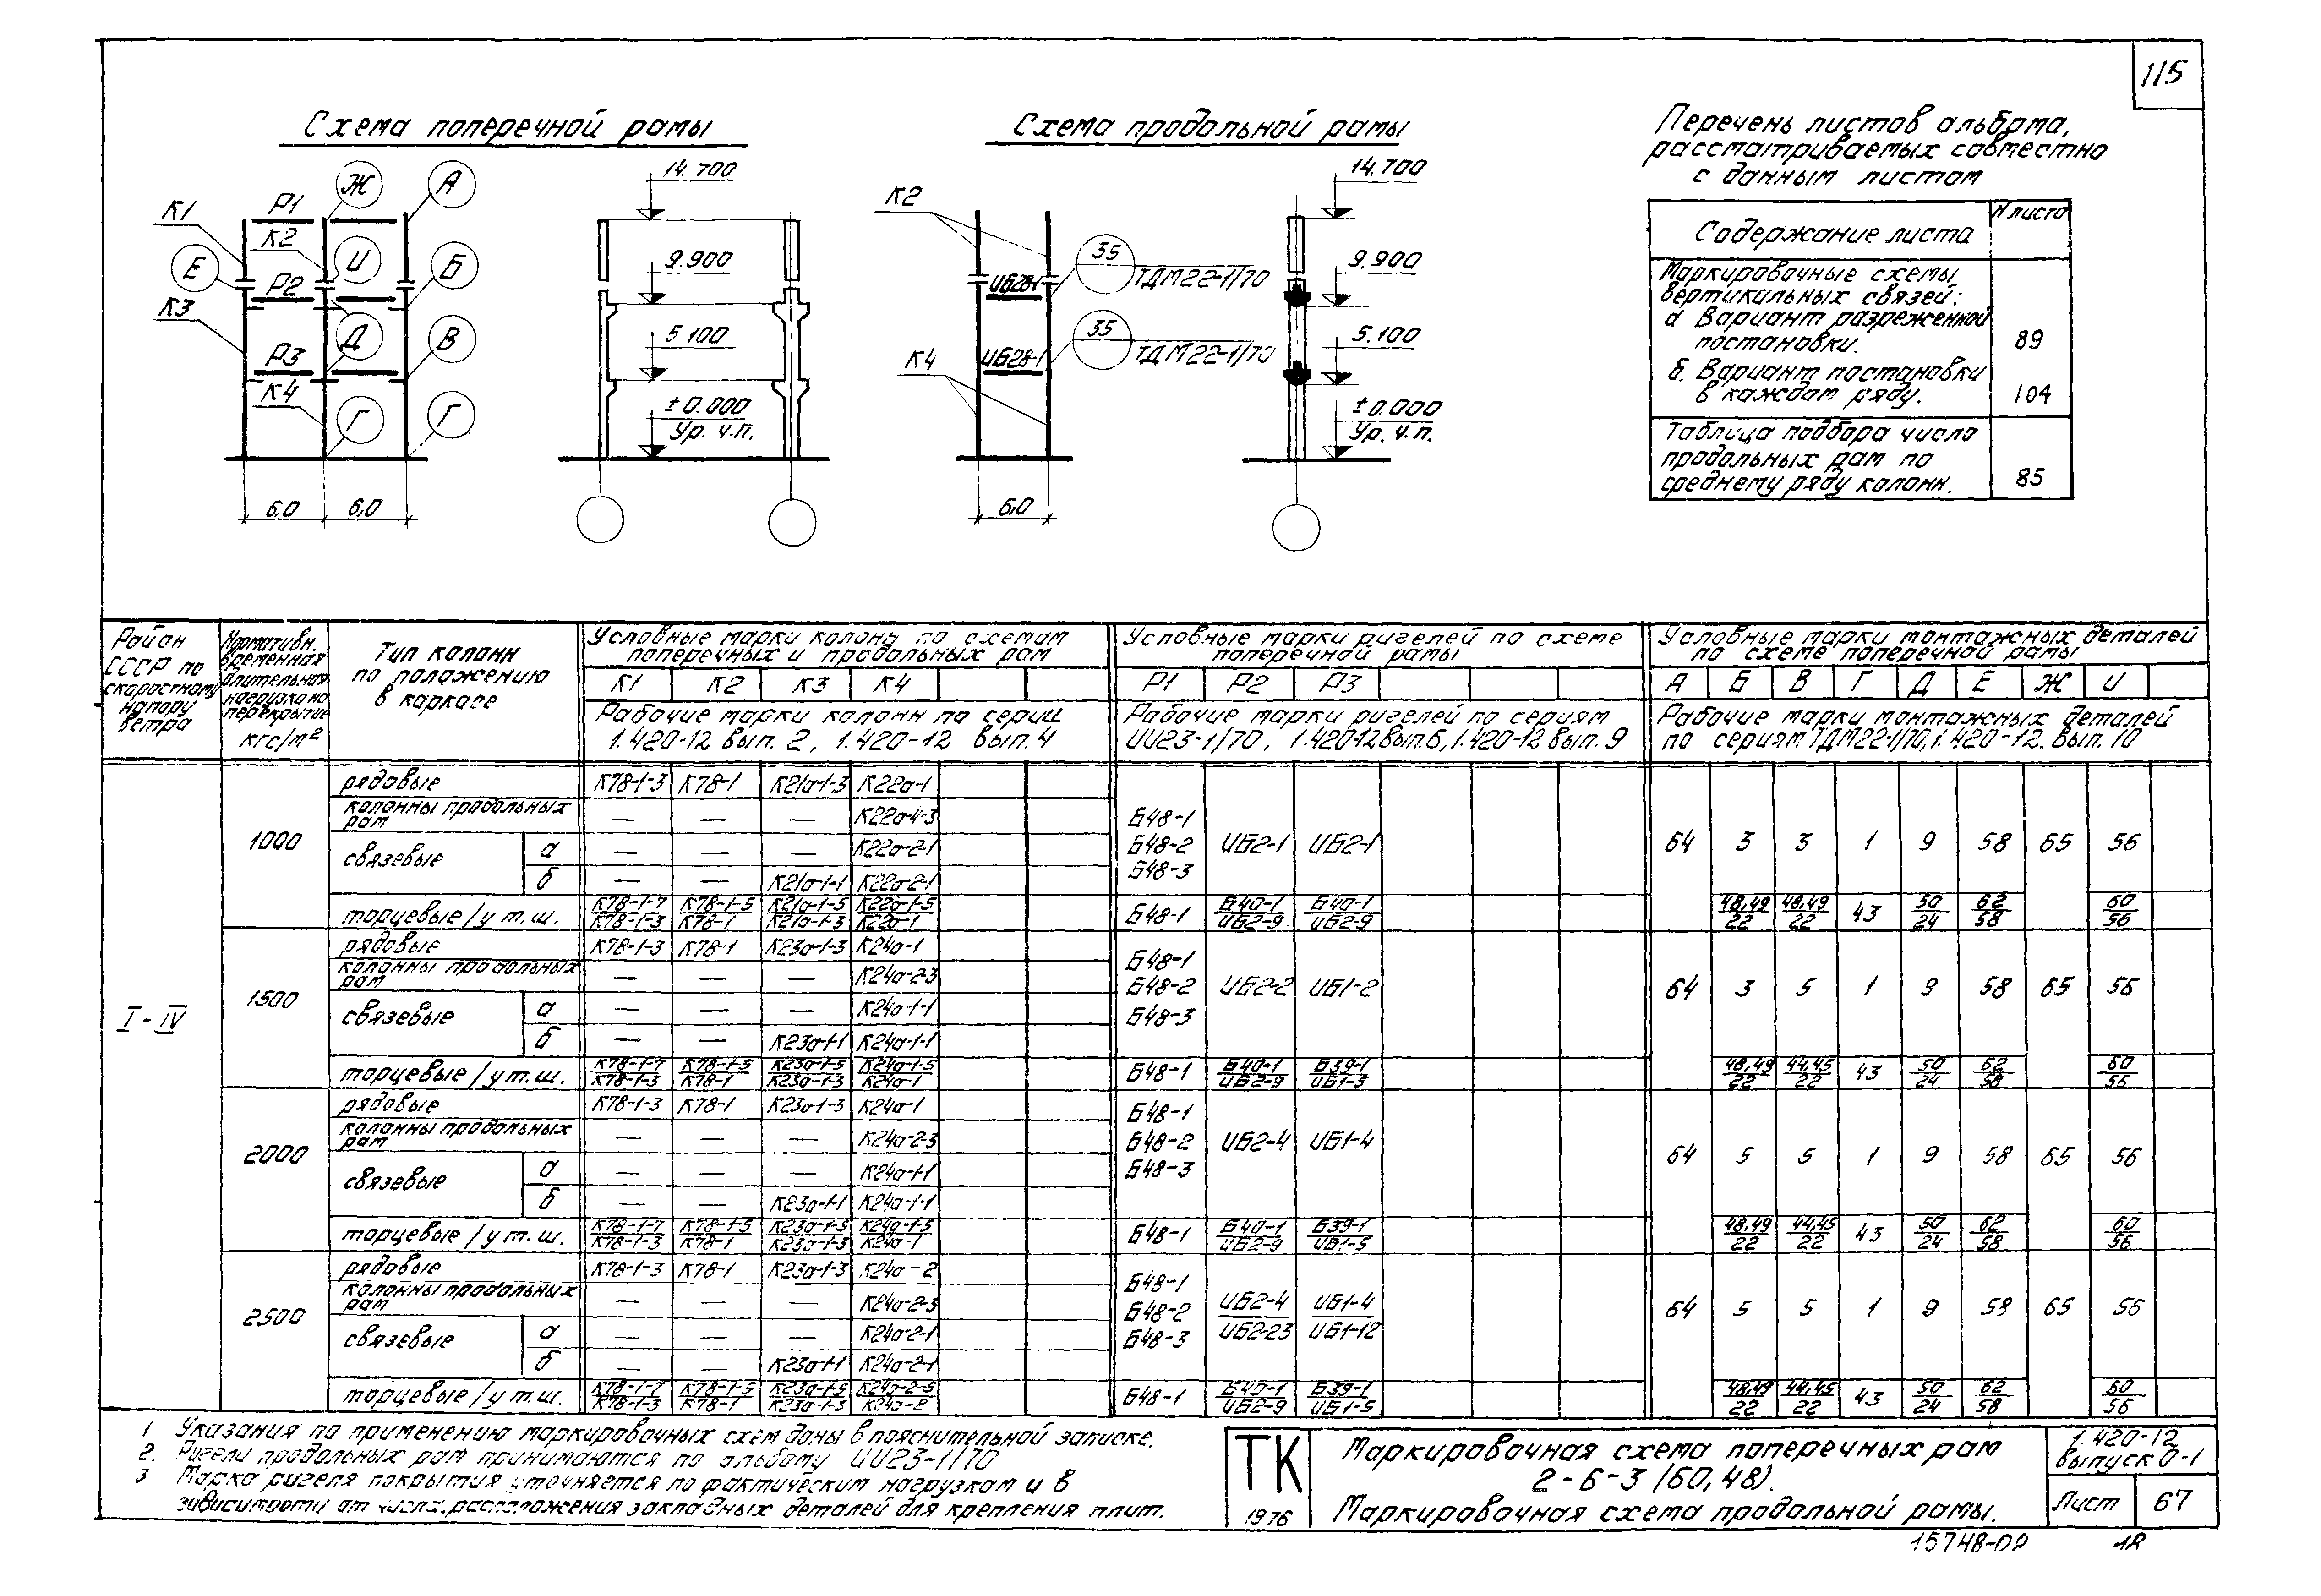 115
Схема поперечной рамы
Схема продольной рамы
Перечень листов альбома,
рассматриваемых совместно
с данным листом
Содержание листа
N листа
Маркировочные схемы
вертикальных связей:
а Вариант разреженной
постановки.
89
б. Вариант постановки
в каждом ряду.
104
Таблица подбора числа
продольных рам по
среднему ряду колонн.
85
К1 Р1 Ж А
К2
Е Р2 И Б
К3
Р3 Д В
К4
Г Г
6,0 6,0
14.700
9.900
5.100
±0.000
Ур. ч.п.
К2
35
ИБ28-1 ТДМ22-1/70
35
К4 ИБ28-1 ТДМ22-1/70
6,0
14.700
9.900
5.100
±0.000
Ур. ч.п.
Район
СССР по
скоростному
напору
ветра
Нормативн.
временная
длительная
нагрузка на
перекрытие
кгс/м²
Тип колонн
по положению
в каркасе
Условные марки колонн по схемам
поперечных и продольных рам
К1 К2 К3 К4
Рабочие марки колонн по серии
1.420-12 вып. 2, 1.420-12 вып. 4
Условные марки ригелей по схеме
поперечной рамы
Р1 Р2 Р3
Рабочие марки ригелей по сериям
ИИ23-1/70, 1.420-12 вып.6, 1.420-12 вып. 9
Условные марки монтажных деталей
по схеме поперечной рамы
А Б В Г Д Е Ж И
Рабочие марки монтажных деталей
по сериям ТДМ22-1/70, 1.420-12. вып. 10
I - IV
1000
рядовые К78-1-3 К78-1 К21а-1-3 К22а-1
колонны продольных
рам — — — К22а-4-3
связевые а — — — К22а-2-1
б — — К21а-1-1 К22а-2-1
Б48-1
Б48-2 ИБ2-1 ИБ2-1
Б48-3
64 3 3 1 9 58 65 56
торцевые / у т.ш. К78-1-7 К78-1-5 К21а-1-5 К22а-1-5
К78-1-3 К78-1 К21а-1-3 К22а-1
Б48-1 Б40-1 Б40-1
ИБ2-9 ИБ2-9
48,49 48,49 43 50 62 60
22 22 24 58 56
1500
рядовые К78-1-3 К78-1 К23а-1-3 К24а-1
колонны продольных
рам — — — К24а-2-3
связевые а — — — К24а-1-1
б — — К23а-1-1 К24а-1-1
Б48-1
Б48-2 ИБ2-2 ИБ1-2
Б48-3
64 3 5 1 9 58 65 56
торцевые / у т.ш. К78-1-7 К78-1-5 К23а-1-5 К24а-1-5
К78-1-3 К78-1 К23а-1-3 К24а-1
Б48-1 Б40-1 Б39-1
ИБ2-9 ИБ1-5
48,49 44,45 43 50 62 60
22 22 24 58 56
2000
рядовые К78-1-3 К78-1 К23а-1-3 К24а-1
колонны продольных
рам — — — К24а-2-3
связевые а — — — К24а-1-1
б — — К23а-1-1 К24а-1-1
Б48-1
Б48-2 ИБ2-4 ИБ1-4
Б48-3
64 5 5 1 9 58 65 56
торцевые / у т.ш. К78-1-7 К78-1-5 К23а-1-5 К24а-1-5
К78-1-3 К78-1 К23а-1-3 К24а-1
Б48-1 Б40-1 Б39-1
ИБ2-9 ИБ1-5
48,49 44,45 43 50 62 60
22 22 24 58 56
2500
рядовые К78-1-3 К78-1 К23а-1-3 К24а-2
колонны продольных
рам — — — К24а-2-3
связевые а — — — К24а-2-1
б — — К23а-1-1 К24а-2-1
Б48-1
Б48-2 ИБ2-4 ИБ1-4
Б48-3 ИБ2-23 ИБ1-12
64 5 5 1 9 58 65 56
торцевые / у т.ш. К78-1-7 К78-1-5 К23а-1-5 К24а-2-5
К78-1-3 К78-1 К23а-1-3 К24а-2
Б48-1 Б40-1 Б39-1
ИБ2-9 ИБ1-5
48,49 44,45 43 50 62 60
22 22 24 58 56
1 Указания по применению маркировочных схем даны в пояснительной записке.
2. Ригели продольных рам принимаются по альбому ИИ23-1/70
3 Марка ригеля покрытия уточняется по фактическим нагрузкам и в
зависимости от числа расположения закладных деталей для крепления плит.
ТК
1976
Маркировочная схема поперечных рам
2-6-3 (60,48).
Маркировочная схема продольной рамы.
1.420-12
выпуск 0-1
Лист 67
15748-02 18